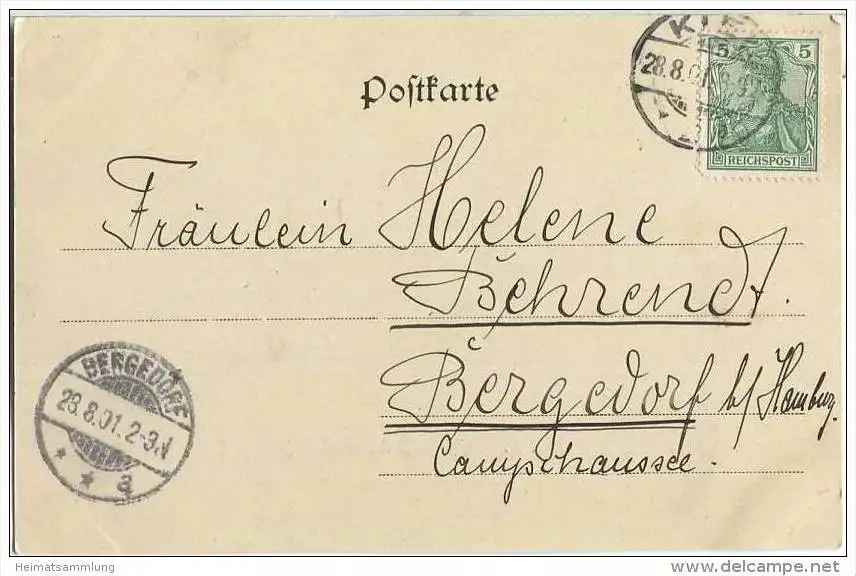 Postkarte
5 5
REICHSPOST
28.8.01
Fräulein Helene
Behrendt.
Bergedorf b/ Hamburg
Campschaussee.
BERGEDORF
28.8.01. 2-3.N
* * a
Heimatsammlung
www.delcampe.net